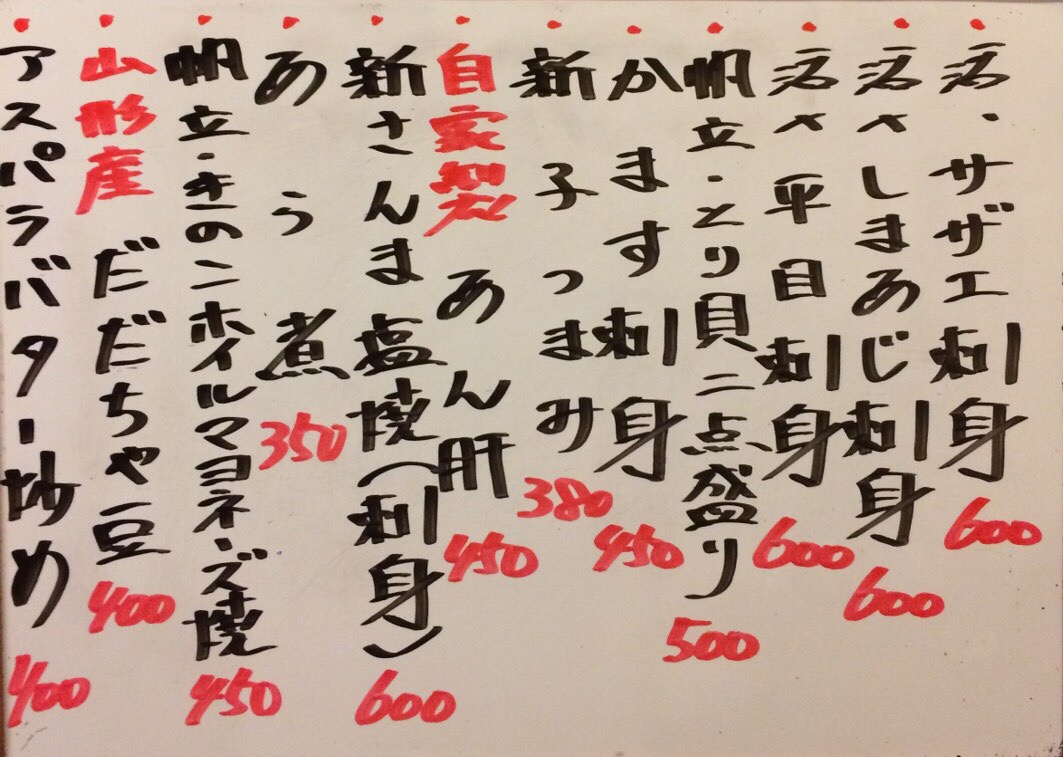 活・サザエ刺身 600
活〆しまあじ刺身 600
活〆平目刺身 600
帆立・とり貝二点盛り 500
かます刺身 450
新子つまみ 380
自家製 あん肝 450
新さんま塩焼(刺身) 600
あら煮 350
帆立・きのこホイルマヨネーズ焼 450
山形産 だだちゃ豆 400
アスパラバター炒め 400